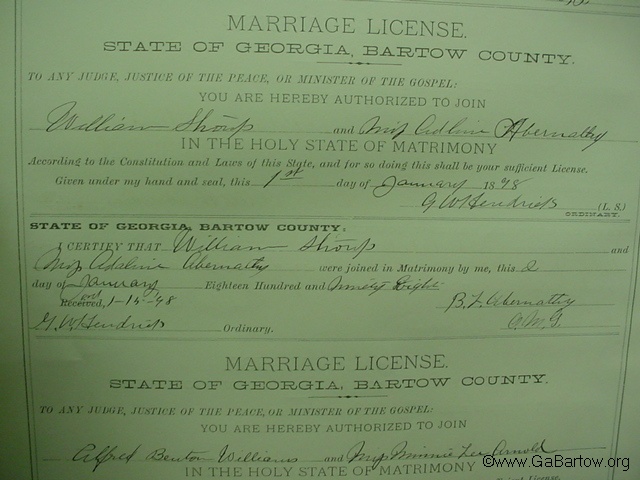 MARRIAGE LICENSE.
STATE OF GEORGIA, BARTOW COUNTY.
TO ANY JUDGE, JUSTICE OF THE PEACE, OR MINISTER OF THE GOSPEL:
YOU ARE HEREBY AUTHORIZED TO JOIN
William Sharp and Miss Adline Abernathy
IN THE HOLY STATE OF MATRIMONY
According to the Constitution and Laws of this State, and for so doing this shall be your sufficient License.
Given under my hand and seal, this 1st day of January 1898
G W Hendricks (L. S.)
ORDINARY.
STATE OF GEORGIA, BARTOW COUNTY:
I CERTIFY THAT William Sharp and
Miss Adaline Abernathy were joined in Matrimony by me, this 2
day of January Eighteen Hundred and Ninety Eight
Received, 1-14-98 B. F. Abernathy
G. W. Hendricks Ordinary. O. M. G.
MARRIAGE LICENSE.
STATE OF GEORGIA, BARTOW COUNTY.
TO ANY JUDGE, JUSTICE OF THE PEACE, OR MINISTER OF THE GOSPEL:
YOU ARE HEREBY AUTHORIZED TO JOIN
Alfred Benton Williams and Miss Minnie Lee Arnold
IN THE HOLY STATE OF MATRIMONY
©www.GaBartow.org